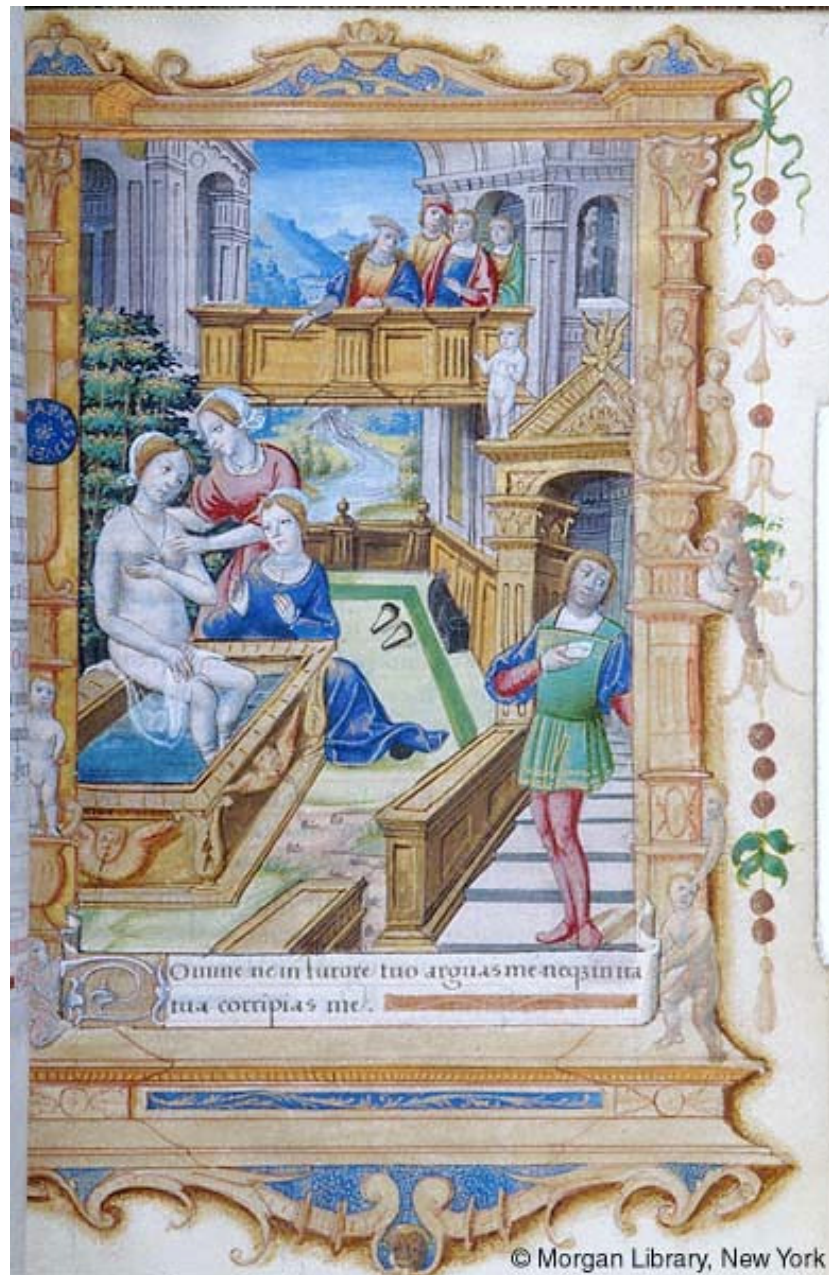 Domine ne in furore tuo arguas me neqz in ira
tua corripias me.
© Morgan Library, New York